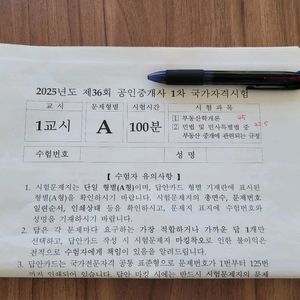 2025년도 제36회 공인중개사 1차 국가자격시험
교 시 문제형별 시험시간 시 험 과 목
1교시 A 100분 ① 부동산학개론
② 민법 및 민사특별법 중
부동산 중개에 관련되는 규정
수험번호 성 명
【 수험자 유의사항 】
1. 시험문제지는 단일 형별(A형)이며, 답안카드 형별 기재란에 표시된
형별(A형)을 확인하시기 바랍니다. 시험문제지의 총면수, 문제번호
일련순서, 인쇄상태 등을 확인하시고, 문제지 표지에 수험번호와
성명을 기재하시기 바랍니다.
2. 답은 각 문제마다 요구하는 가장 적합하거나 가까운 답 1개만
선택하고, 답안카드 작성 시 시험문제지 마킹착오로 인한 불이익은
전적으로 수험자에게 책임이 있음을 알려드립니다.
3. 답안카드는 국가전문자격 공통 표준형으로 문제번호가 1번부터 125번
까지 인쇄되어 있습니다. 답안 마킹 시에는 반드시 시험문제지의 문제